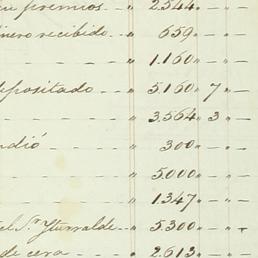 en premios - - " 2.544 " - " -
dinero recibido - - " 659 " - " -
" 1.160 " - " -
depositado " 5.160 " 7 " -
" 3.564 " 3 " -
ndió " 300 " - " -
" 5.000 " - " -
" 1.347 " - " -
el Sr. Yturralde - " 5.300 " - " -
de cera - - " 2.613 " - " -